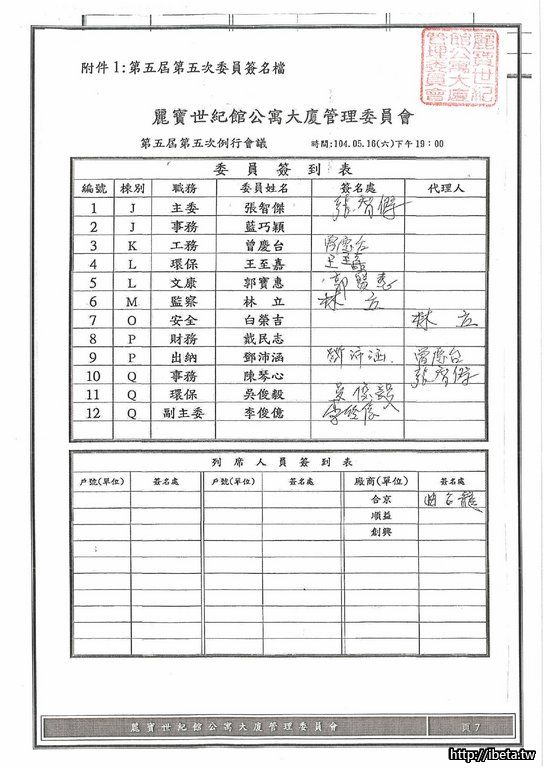 麗寶世紀
館公寓大廈
管理委員會
附件1:第五屆第五次委員簽名檔
麗寶世紀館公寓大廈管理委員會
第五屆第五次例行會議 時間:104.05.16(六)下午19:00
委員簽到表
編號 棟別 職務 委員姓名 簽名處 代理人
1 J 主委 張智傑 張智傑
2 J 事務 藍巧穎
3 K 工務 曾慶台 曾慶台
4 L 環保 王至嘉 王至嘉
5 L 文康 郭寶惠 郭寶惠
6 M 監察 林立 林立
7 O 安全 白榮吉 林立
8 P 財務 戴民志
9 P 出納 鄧沛涵 鄧沛涵 曾慶台
10 Q 事務 陳琴心 張智傑
11 Q 環保 吳俊毅 吳俊毅
12 Q 副主委 李俊億 李俊億
列席人員簽到表
戶號(單位) 簽名處 戶號(單位) 簽名處 廠商(單位) 簽名處
合京
順益
創興
麗寶世紀館公寓大廈管理委員會 頁7
http://ibeta.tw